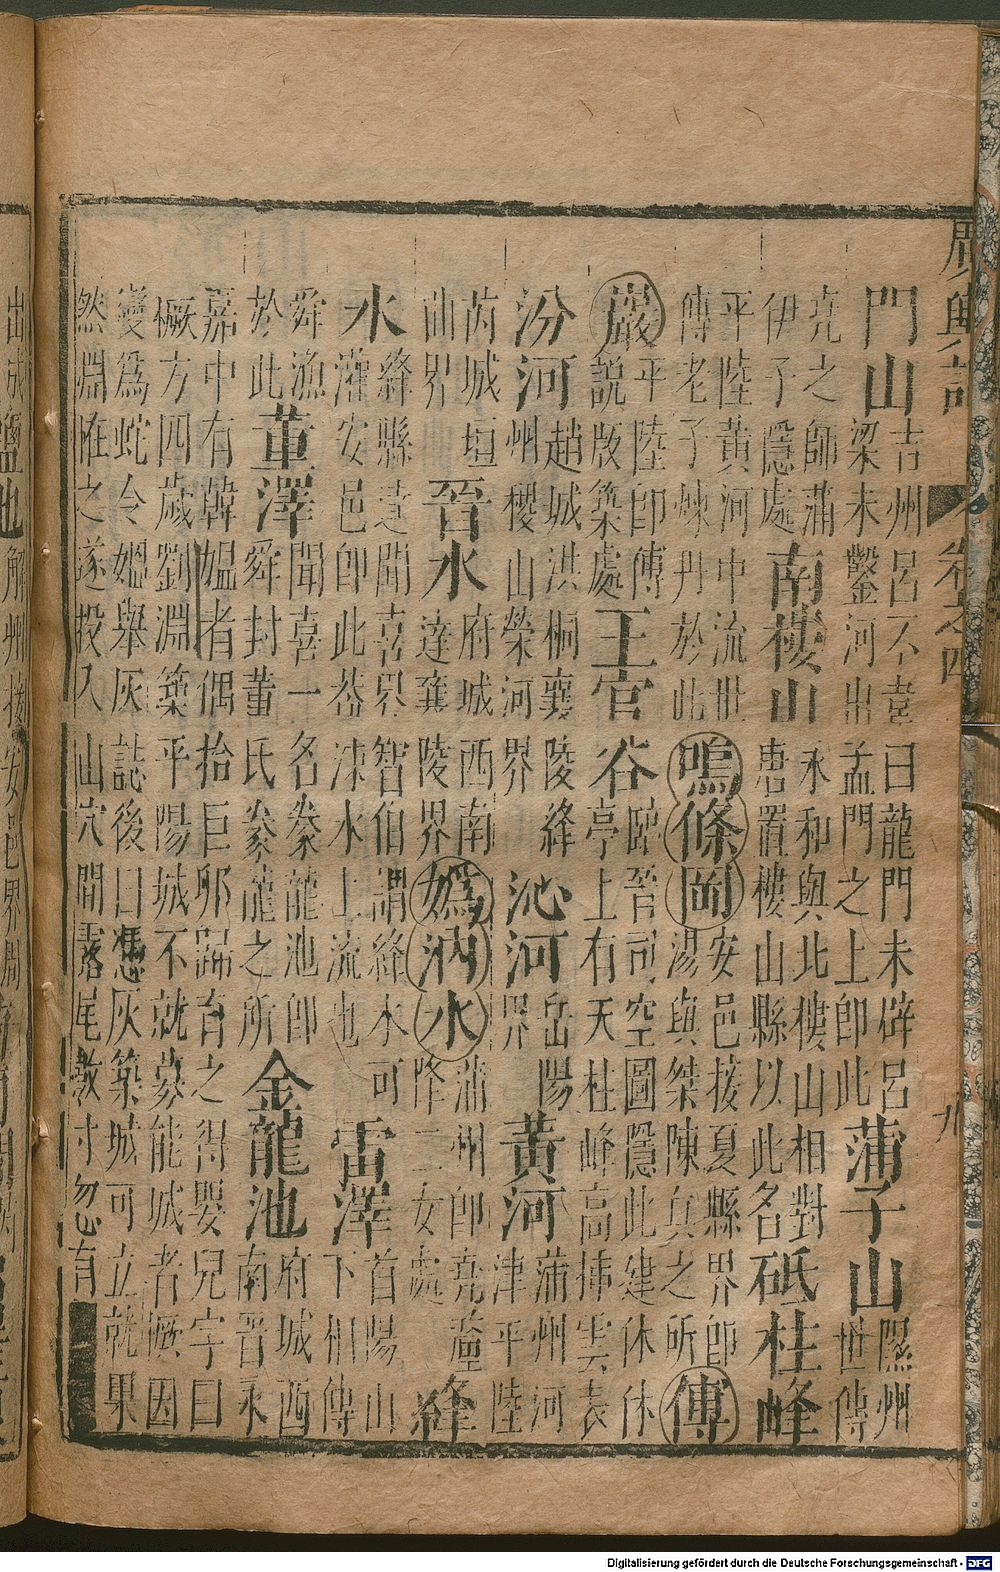 廣輿記 卷之四 九
門山
吉州呂不韋曰龍門未辟呂
梁未鑿河出孟門之上即此
蒲子山
隰州
世傳
堯之師蒲
伊子隱處
南樓山
永和與北樓山相對
唐置樓山縣以此名
砥柱峰
平陸黃河中流世
傳老子煉丹於此
鳴條岡
安邑接夏縣界即
湯與桀陳兵之所
傅
巖
平陸即傅
說版築處
王官谷
臨晉司空圖隱此建休休
亭上有天柱峰高插雲表
汾河
趙城洪桐襄陵絳
州稷山榮河界
沁河
岳陽
界
黃河
蒲州河
津平陸
芮城垣
曲界
晉水
府城西南
達襄陵界
媯汭水
蒲州即堯釐
降二女處
絳
水
絳縣達聞喜界智伯謂絳水可
灌安邑即此蓋涑水上流也
雷澤
首陽山
下相傳
舜漁
於此
董澤
聞喜一名豢龍池即
舜封董氏豢龍之所
金龍池
府城西
南晉永
嘉中有韓媼者偶拾巨卵歸育之得嬰兒字曰
橛方四歲劉淵築平陽城不就募能城者橛因
變爲蛇令媼舉灰誌後曰憑灰築城可立就果
然淵怪之遂投入山穴間露尾數寸忽有
出成鹽池解州接安邑界周
Digitalisierung gefördert durch die Deutsche Forschungsgemeinschaft - DFG